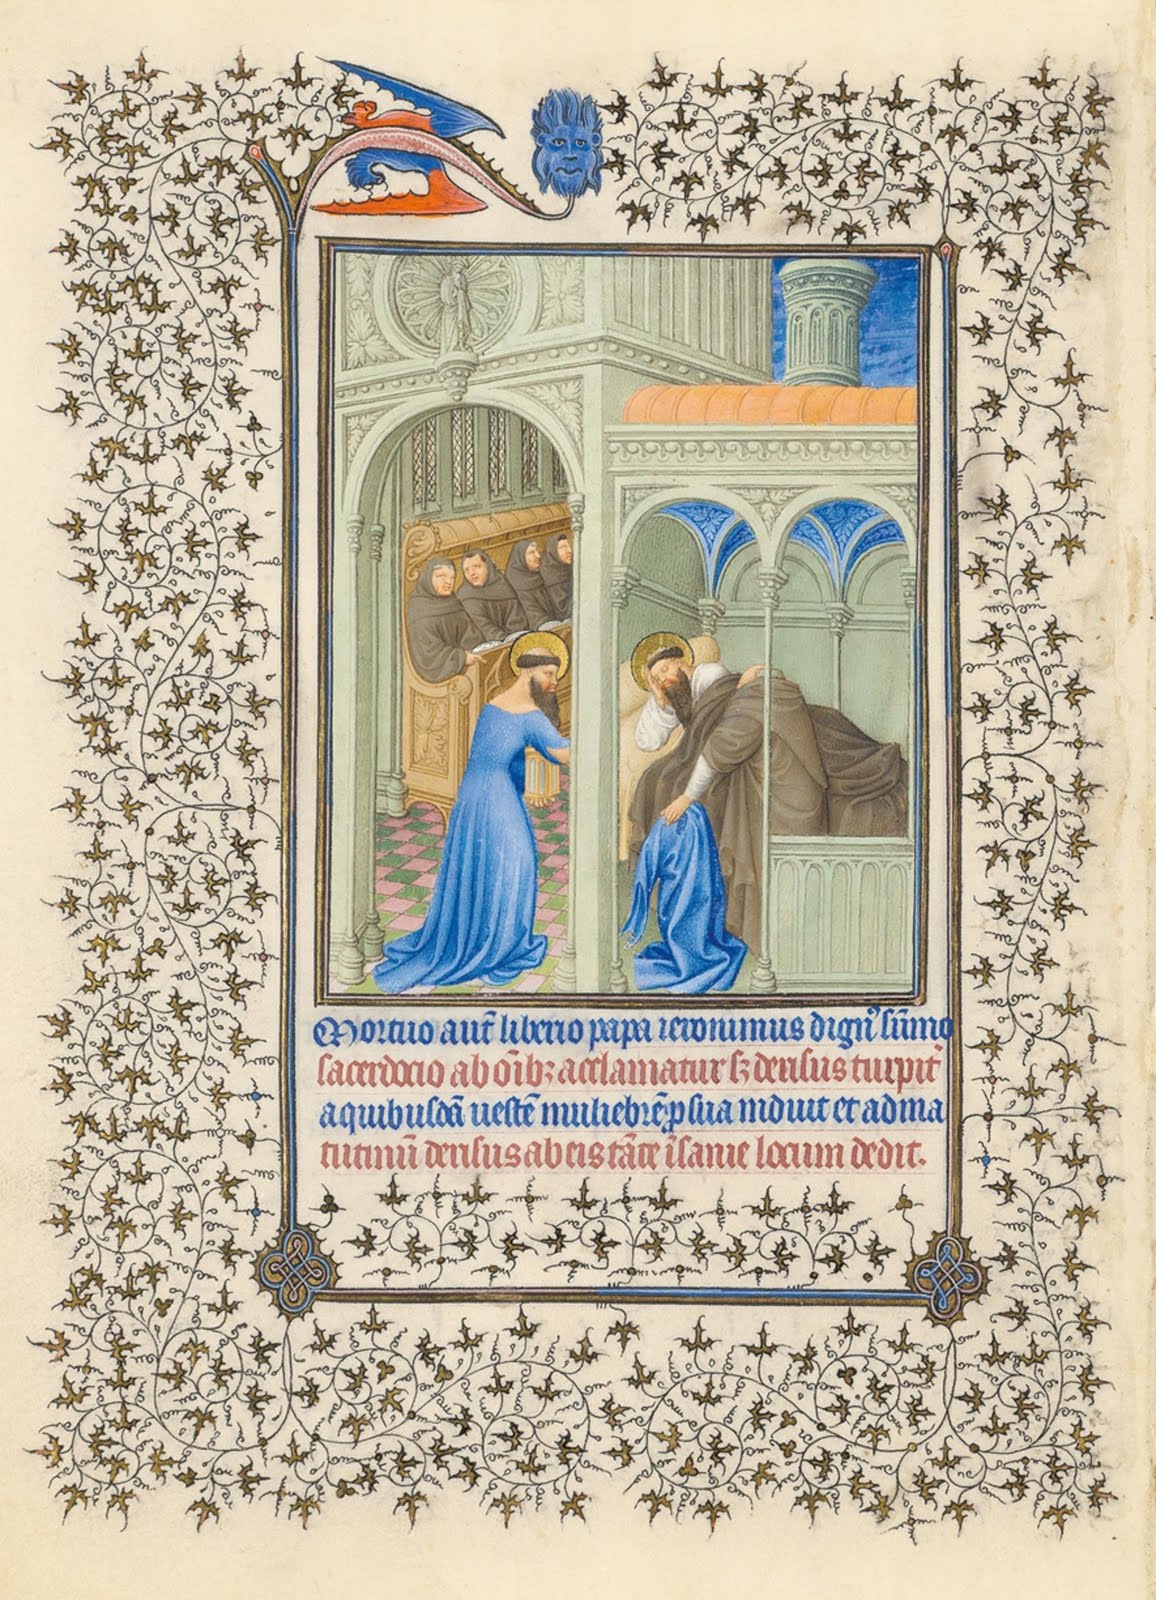 Mortuo aut̄ liberio papa ieronimus dignꝰ sūmo
sacerdocio ab oīb; acclamatur sꝫ derisus turpit̄
a quibusdā uestē muliebrē p sua induit et ad ma
tutinū derisus ab eis tāte īsanie locum dedit.